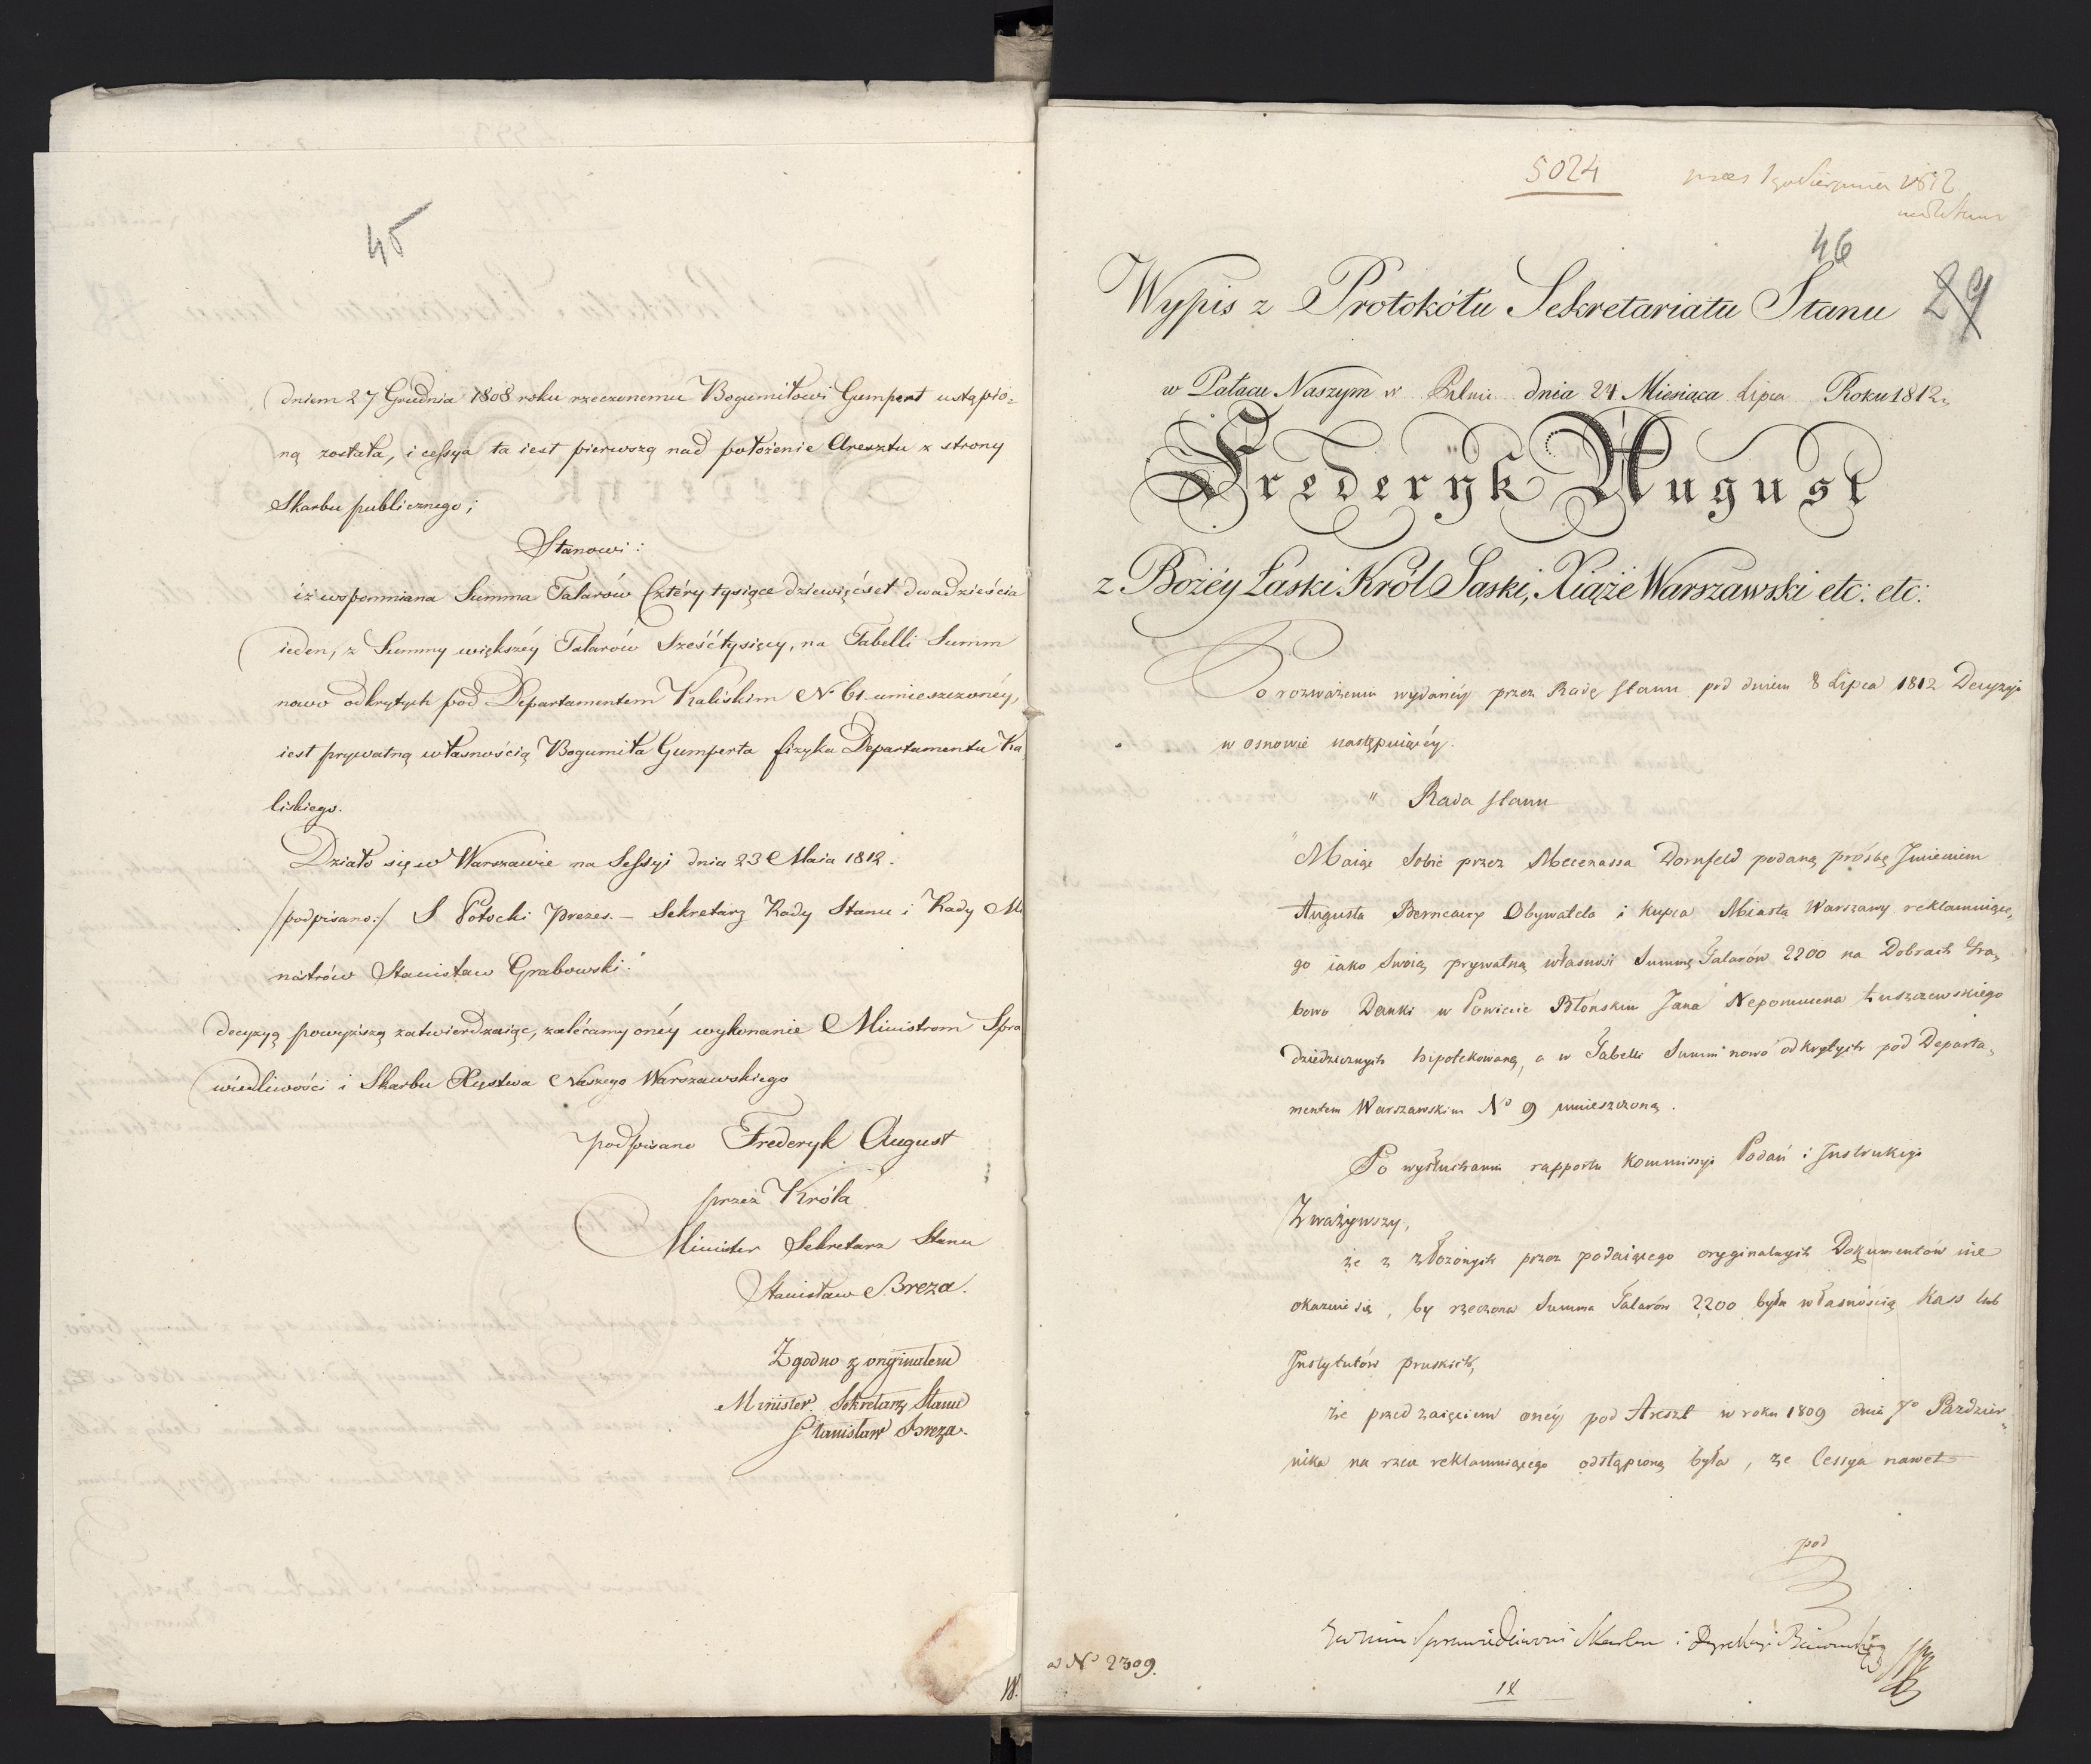 45
dniem 27 Grudnia 1808 roku rzeczonemu Bogumiłowi Gumpert ustąpio=
ną została, i cessya ta iest pierwszą nad położenie Aresztu z strony
Skarbu publicznego;
Stanowi:
iż wspomniana Summa Talarów Cztéry tysiące dziewięćset dwadzieścia
ieden, z Summy większéy Talarów Sześćtysięcy, na Tabelli Summ
nowo odkrytych pod Departamentem Kaliskim No 61. umieszczonéy,
iest prywatną własnością Bogumiła Gumperta fizyka Departamentu Ka
liskiego.
Działo się w Warszawie na Sessyi dnia 23 Maia 1812.
/podpisano:/ S Potocki Prezes. — Sekretarz Rady Stanu i Rady Mi
nistrów Stanisław Grabowski."
decyzyą powyższą zatwierdzaiąc, zalécamy onéy wykonanie Ministrom Spra
wiedliwości i Skarbu Xięstwa Naszego Warszawskiego
podpisano Frederyk August
przez Króla
Minister Sekretarz Stanu
Stanisław Breza.
Zgodno z oryginałem
Minister Sekretarz Stanu
Stanisław Breza.
18.
5024
1go Sierpnia 1812
46
29
Wypis z Protokółu Sekretariatu Stanu
w Pałacu Naszym w Pilnic dnia 24 Miesiąca Lipca Roku 1812.
Frederyk August
z Bożéy Łaski Król Saski, Xiąże Warszawski etc: etc:
Po rozważeniu wydanéy przez Radę Stanu pod dniem 8 Lipca 1812 Decyzyi
w osnowie następuiącéy.
" Rada Stanu
" Maiąc Sobie przez Mecenassa Dornfeld podaną prośbę Jmieniem
Augusta Berneaux Obywatela i Kupca Miasta Warszawy reklamuiące,
go iako Swoią prywatną własność Summę Talarów 2200 na Dobrach Gra,
bowo Danki w Powiecie Błońskim Jana Nepomucena Łuszczewskiego
dziedzicznych hipotekowaną, a w Tabelli Summ nowo odkrytych pod Departa,
mentem Warszawskim No 9 umieszczoną.
Po wysłuchaniu rapportu Kommissyi Podań i Jnstrukcyi
Zważywszy,
że z złożonych przez podaiącego oryginalnych Dokumentów nie
okazuie się, by rzeczona Summa Talarów 2200 była własnością Kass lub
Jnstytutów pruskich,
że przed zaięciem onéy pod Areszt w roku 1809 dnia 7o Pazdzier,
nika na rzecz reklamuiącego odstąpioną była, że Cessya nawet
pod
Sprawiedliwości Skarbu i Dyrekcyi
ad No 2309.
18